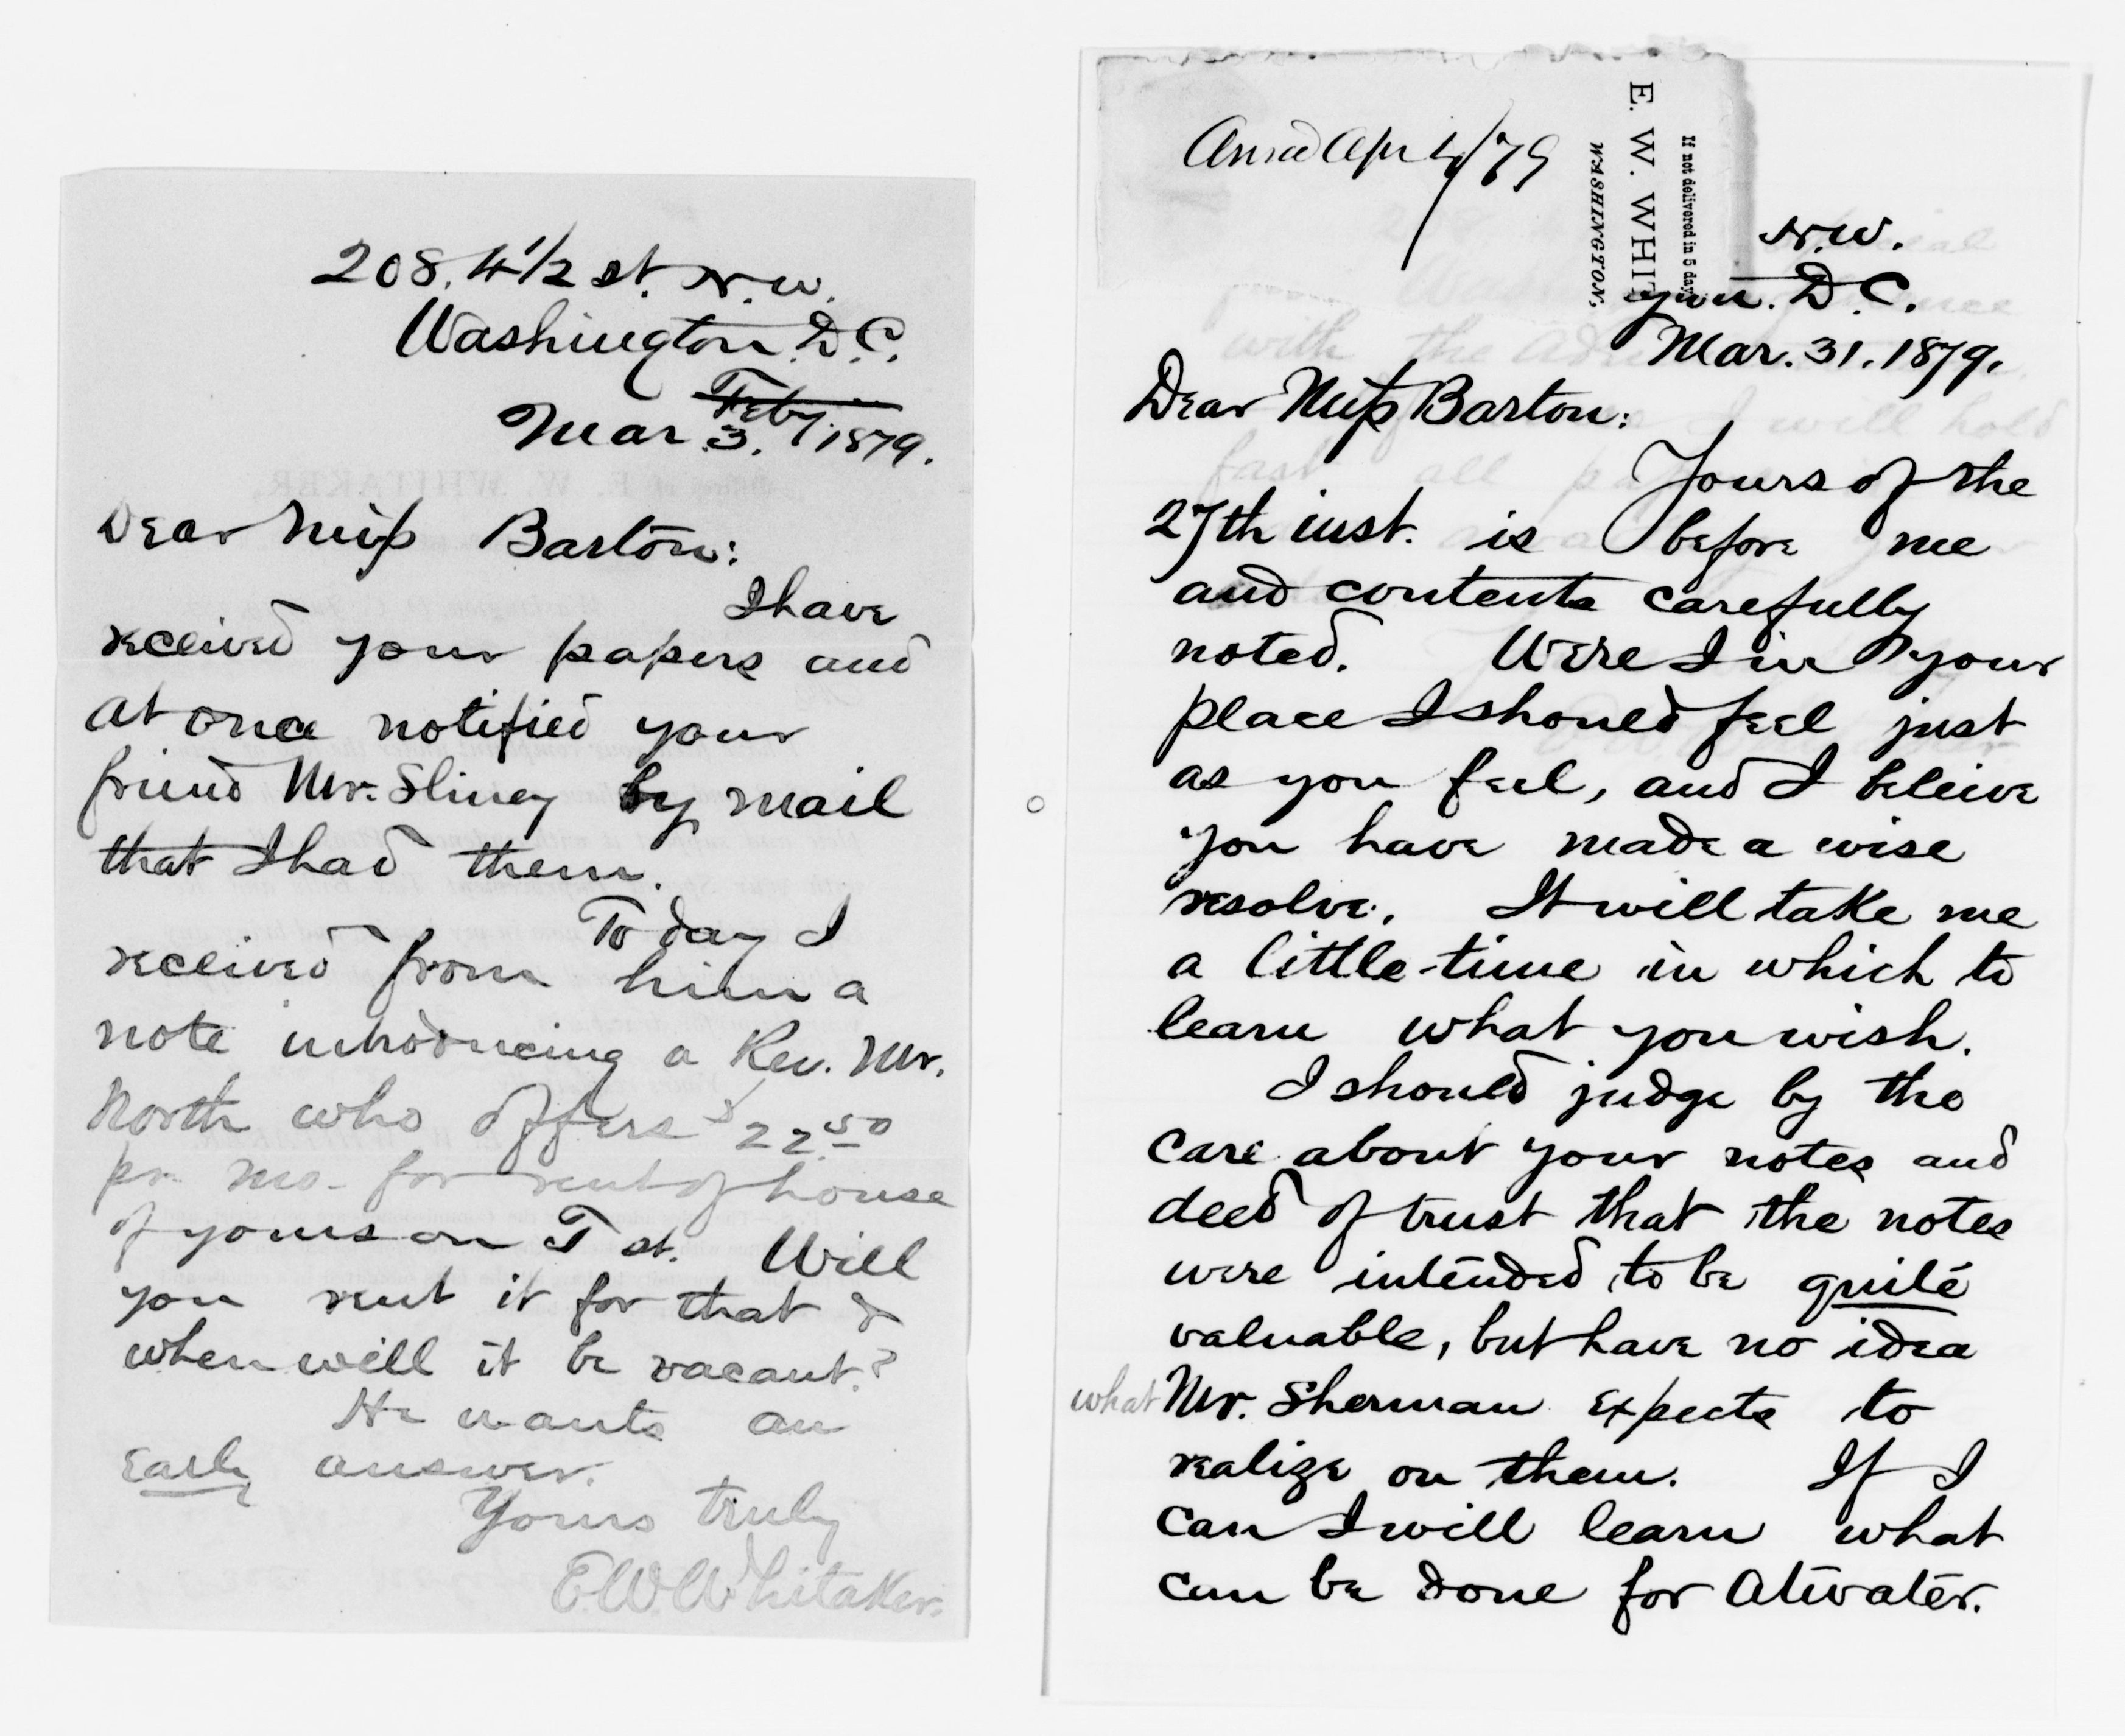 208. 4 1/2 st. N.W.
Washington. D.C.
Feby.
Mar. 3. 1879.
Dear Miss Barton:
I have
received your papers and
at once notified your
friend Mr. Sliney by mail
that I had them.
Today I
received from him a
note introducing a Rev. Mr.
North who offers $22.50
pr. mo. for rent of house
of yours on T st. Will
you rent it for that &
when will it be vacant?
He wants an
Early answer.
Yours truly
E.W. Whitaker.
Ansd Apr 4/79
If not delivered in 5 day
E. W. WHIT
WASHINGTON.
N.W.
D.C.
Mar. 31. 1879.
Dear Miss Barton:
Yours of the
27th inst. is before me
and contents carefully
noted. Were I in your
place I should feel just
as you feel, and I beleive
you have made a wise
resolve. It will take me
a little time in which to
learn what you wish.
I should judge by the
care about your notes and
deed of trust that the notes
were intended to be quite
valuable, but have no idea
what Mr. Sherman expects to
realize on them. If I
can I will learn what
can be done for Atwater.